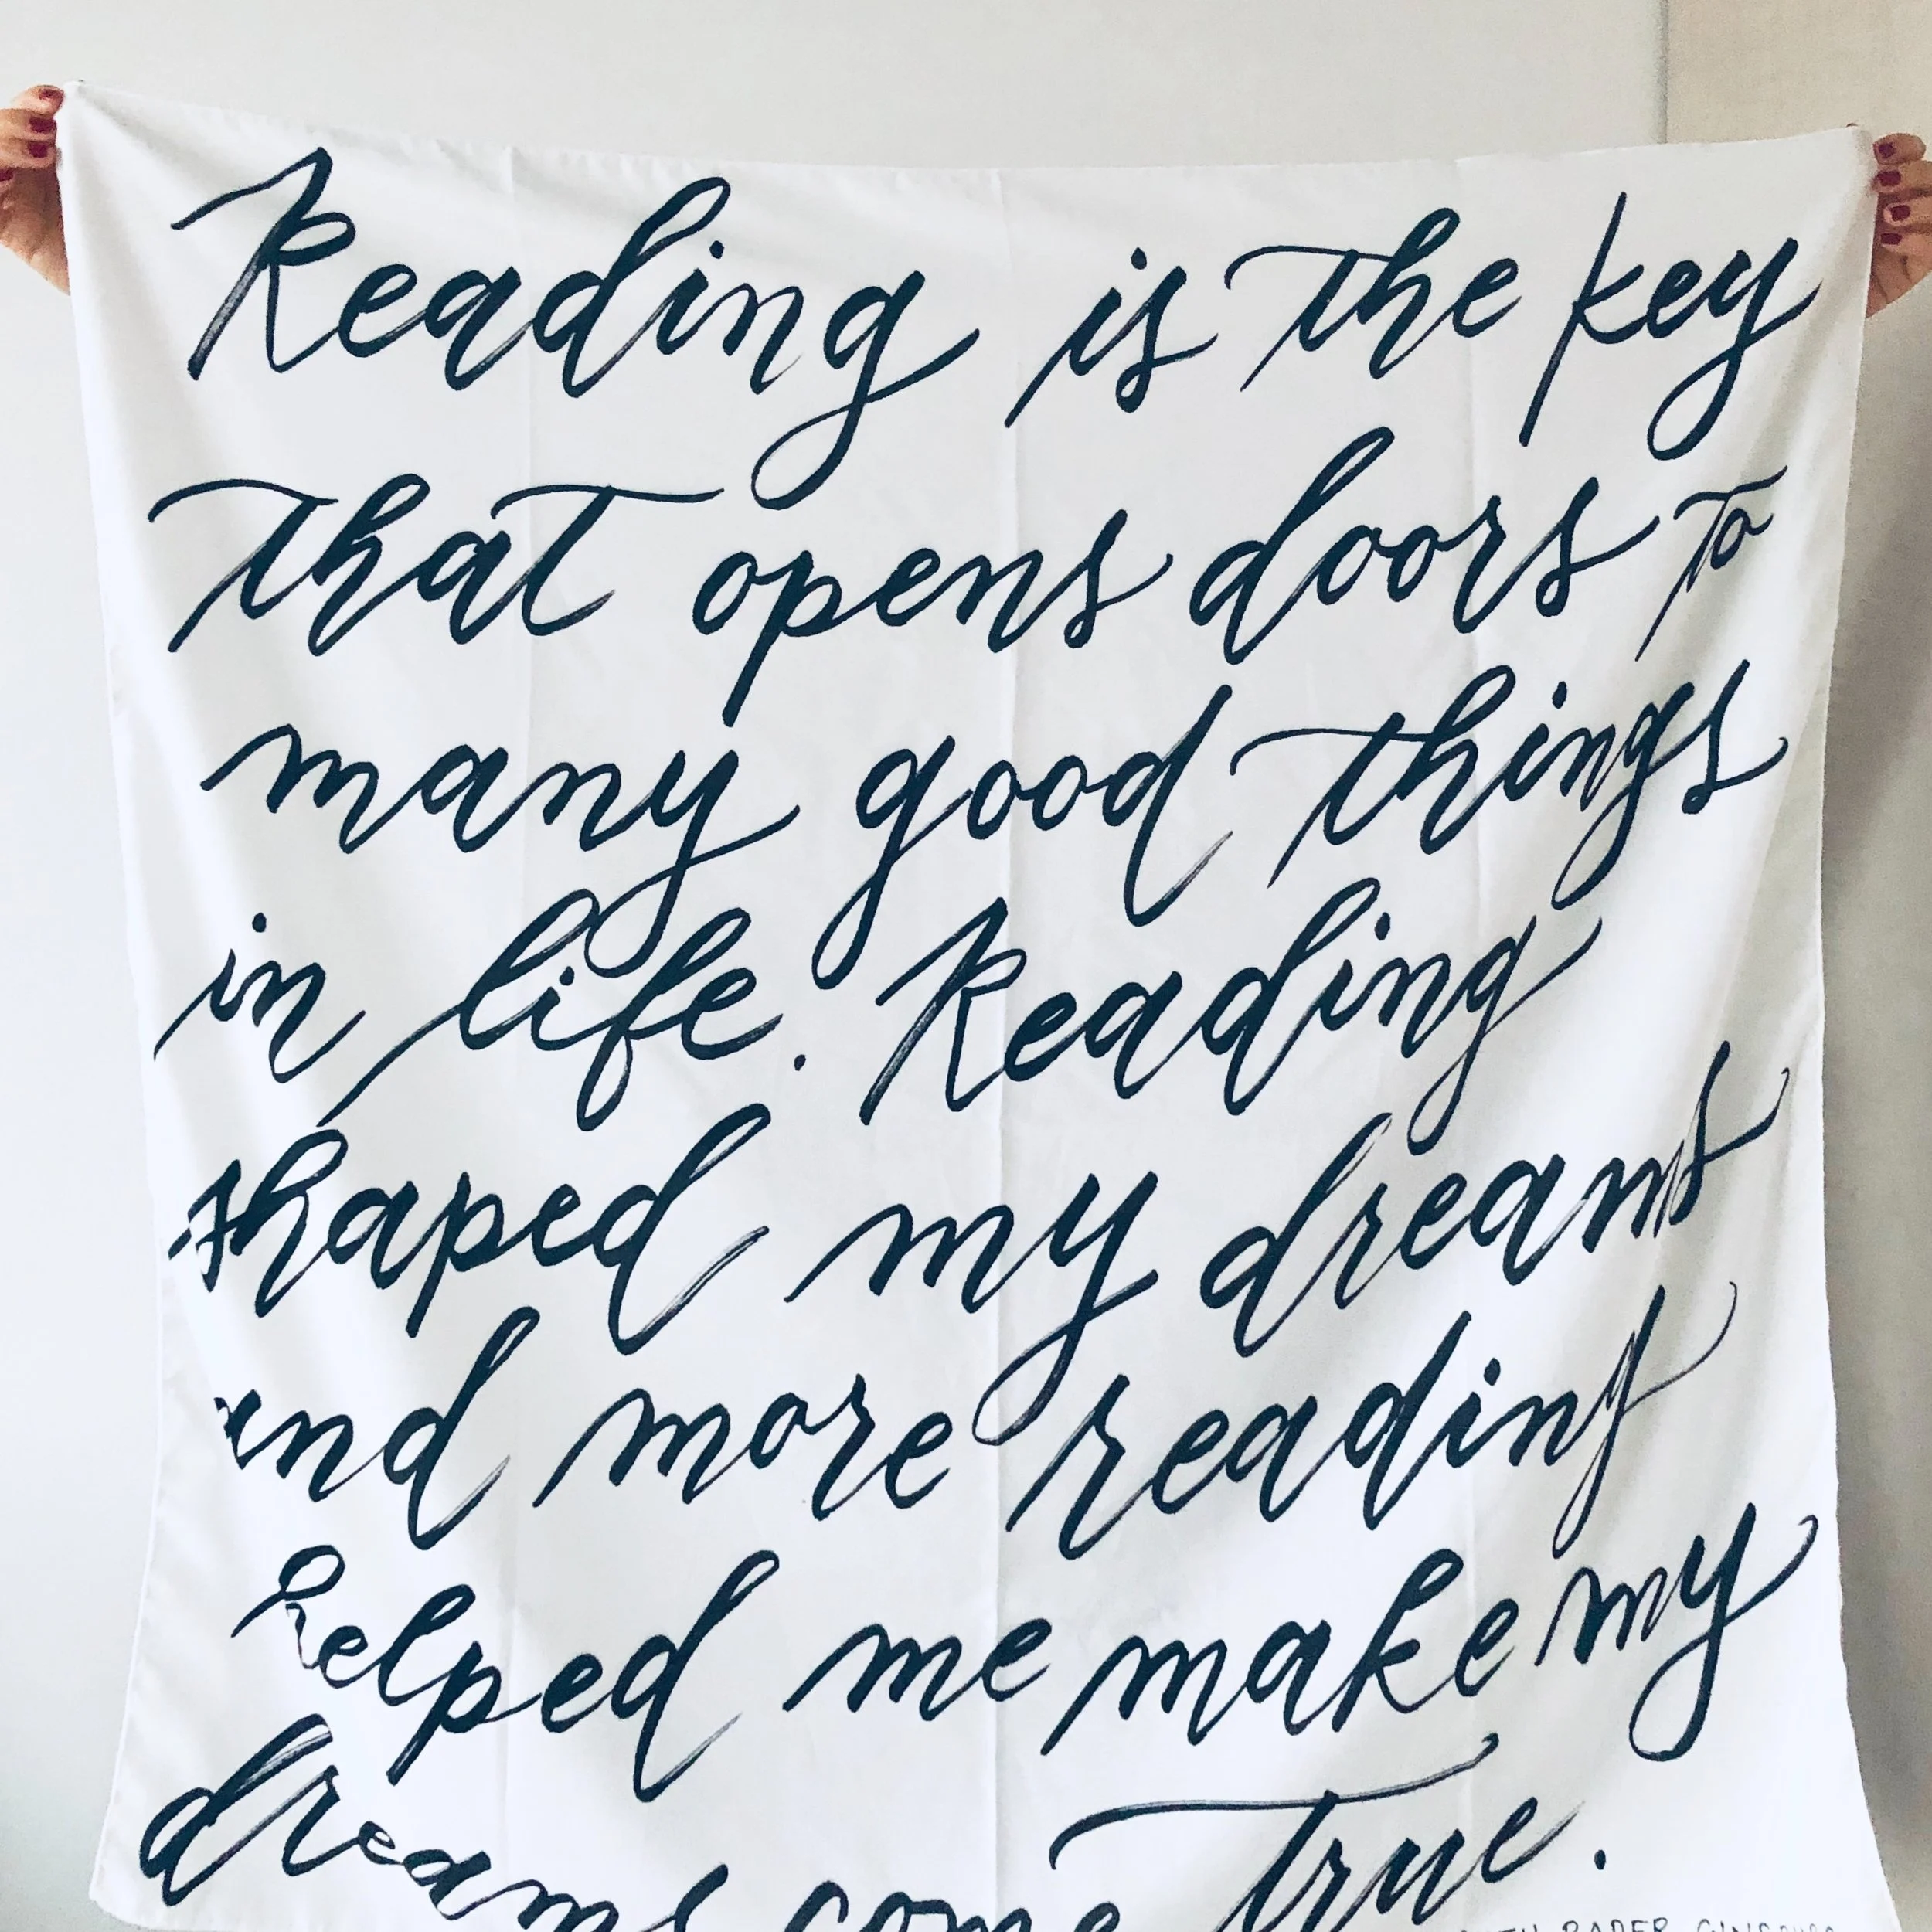 Reading is the key
that opens doors to
many good things
in life. Reading
shaped my dreams
and more reading
helped me make my
dreams come true.
RUTH BADER GINSBURG